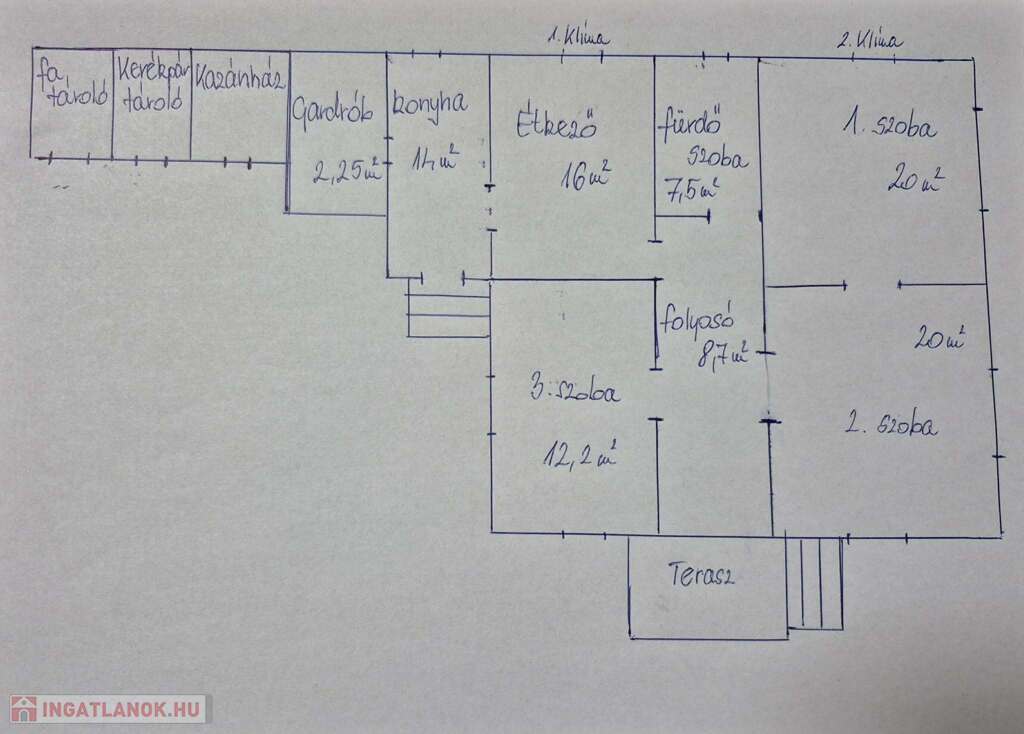 1. Klíma
2. Klíma
fa
tároló
Kerékpár
tároló
Kazánház
Gardrób
2,25 m²
konyha
14 m²
Étkező
16 m²
fürdő
szoba
7,5 m²
1. szoba
20 m²
folyosó
8,7 m²
20 m²
2. szoba
3. szoba
12,2 m²
Terasz
INGATLANOK.HU